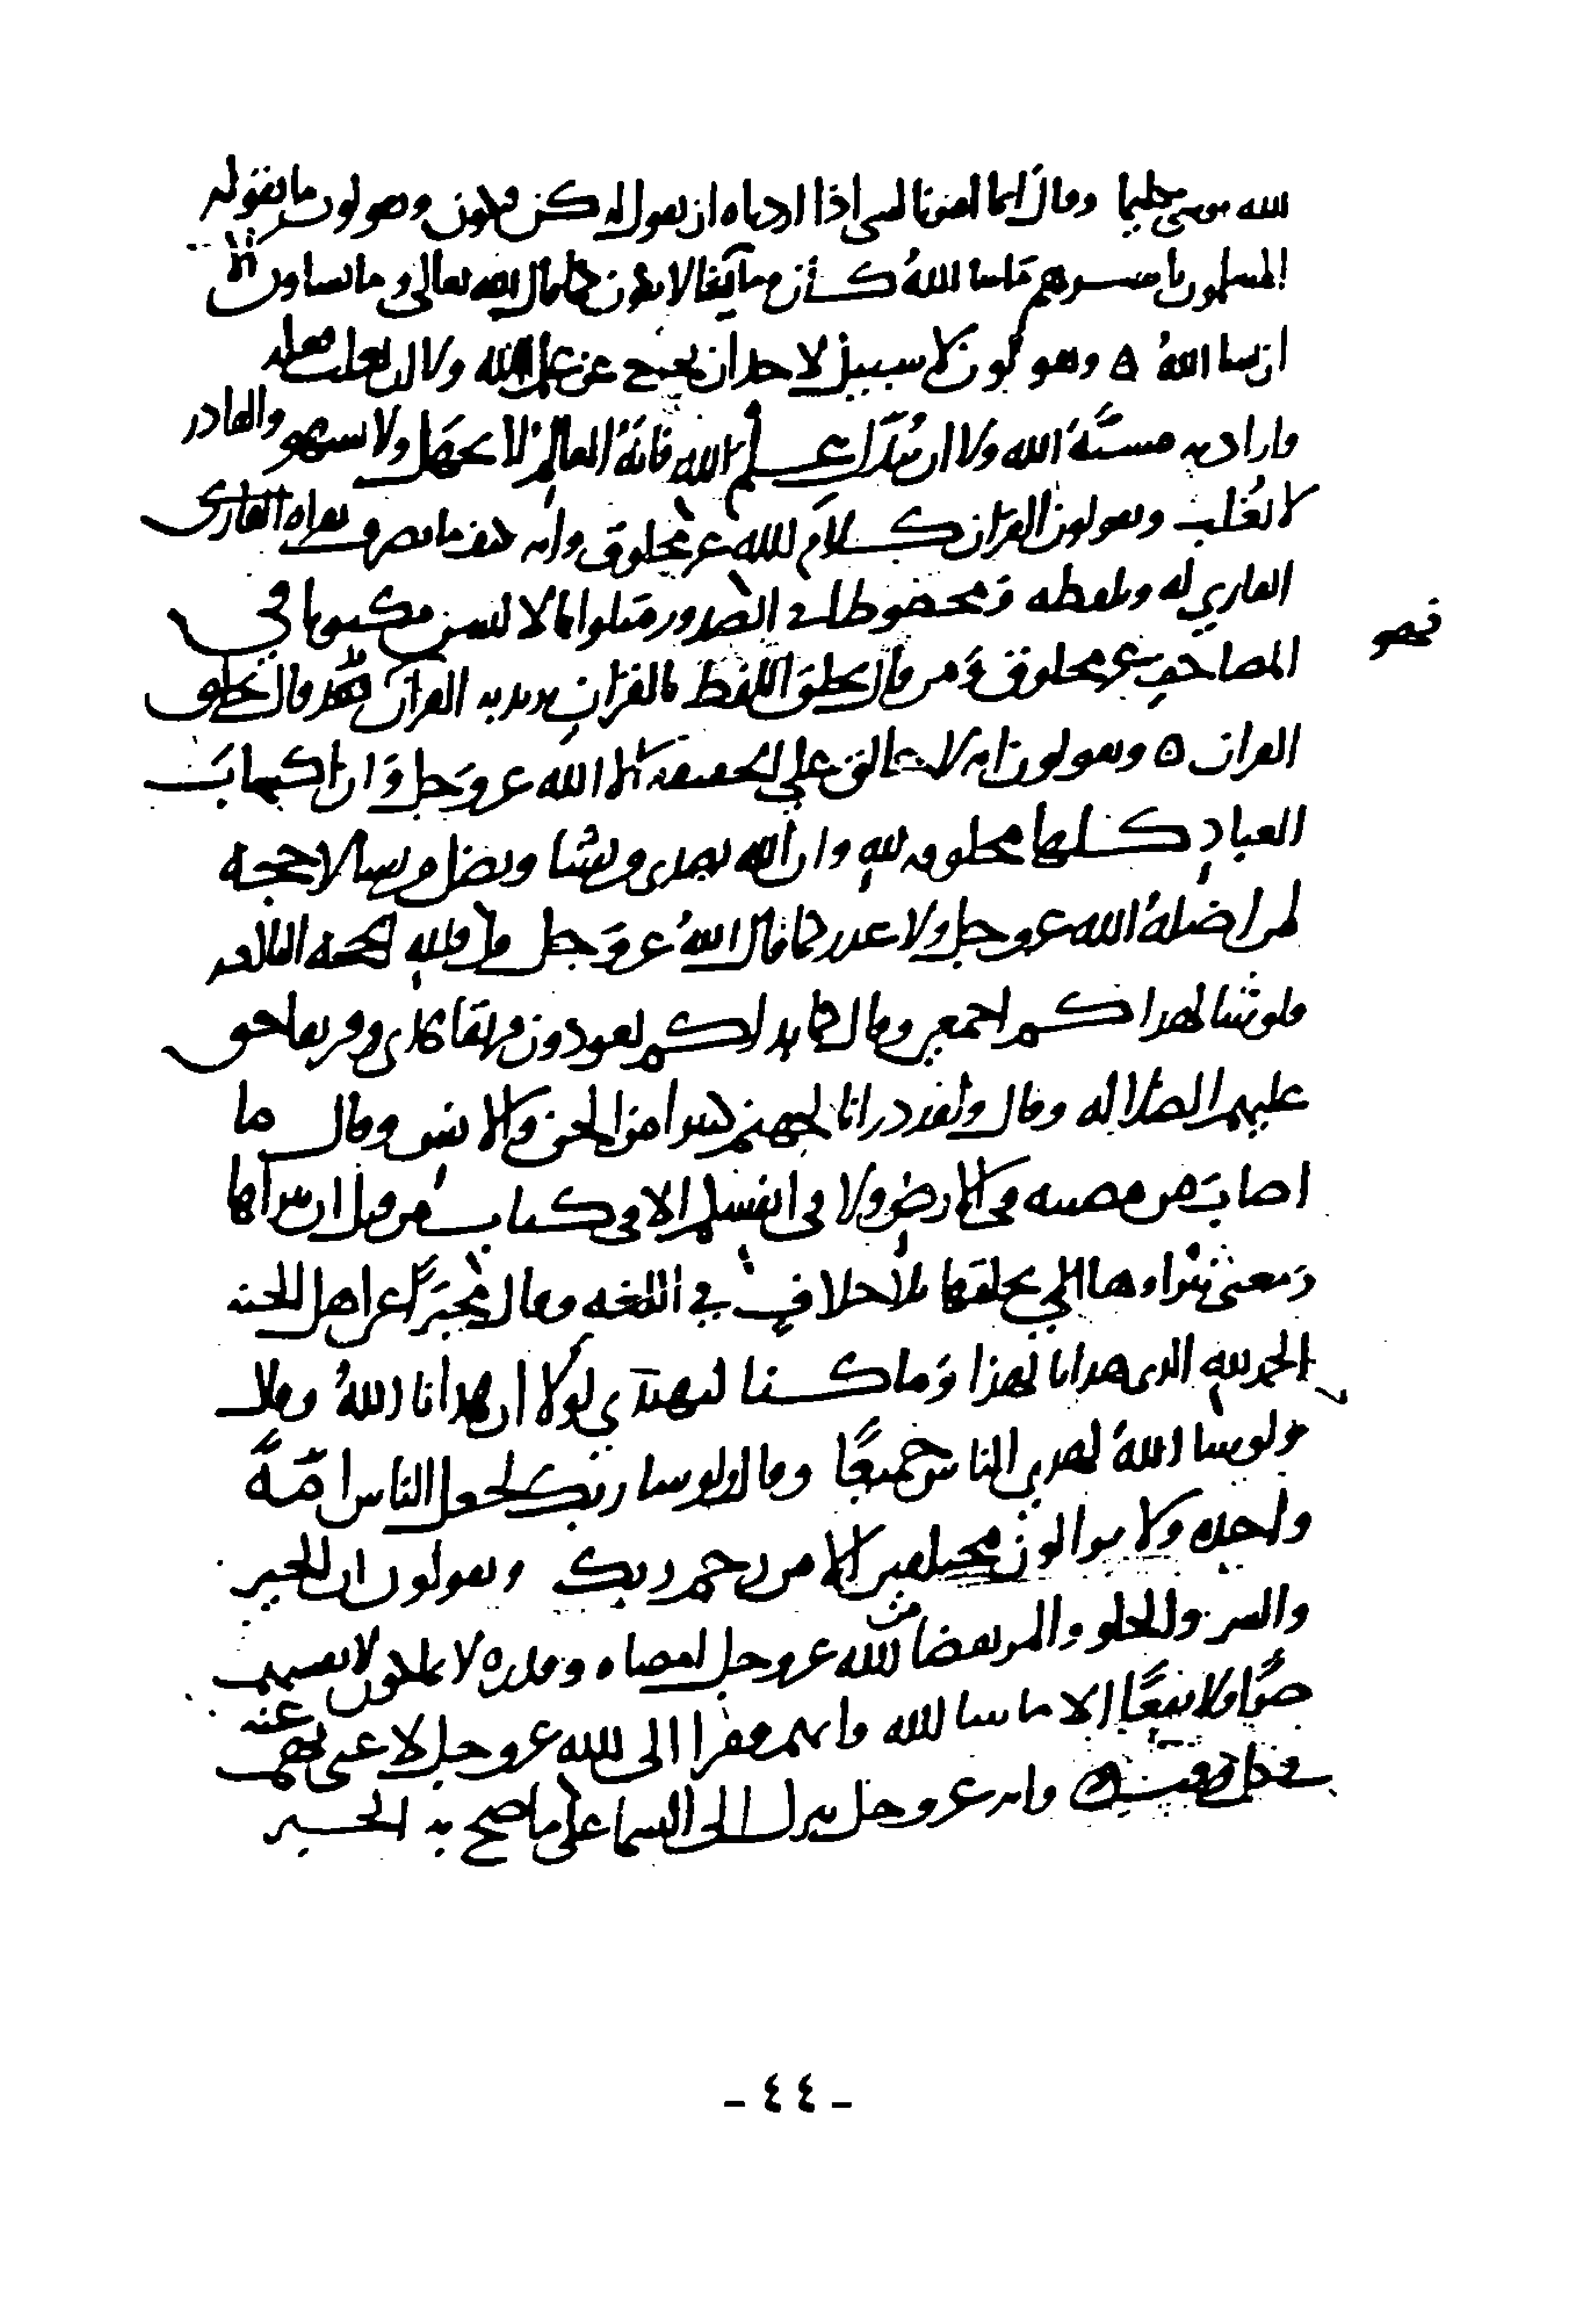 الله موسى تكليما وقال انما امرنا لشى اذا اردناه ان نقول له كن فيكون ويقولون ما يقوله
المسلمون باسرهم ماشا اللهُ كان وما لا يشا لا يكون كما قال الله تعالى وما تشاون الا
ان يشا اللهُ ه ويقولون لا سبيل لاحد ان يخرج عن علم الله ولا ان يغلب فعله
وارادته مشيَّة الله ولا ان يبدّل علم الله فانهُ العالم لا يجهَل ولا يسهو والقادر
لا يُغلب ويقولون القران كلامُ الله غير مخلوق وانه كيف ما تصرف بقراه القارى
القاري له وبلفظه ومحفوظا في الصدور متلوا بالالسن مكتوبا في
فهو
المصاحفِ غير مخلوق ومن قال بخلق اللفظ بالقرانِ يريد به القرانَ فقد قال بخلق
القران ه ويقولون انه لا خالق على الحقيقه الا الله عز وَجل وَان اكسابَ
العبادِ كلها مخلوقه للهِ وان الله يهدى من يشا ويضل من يشا لا حجه
لمن اضلهُ الله عز وجل ولا عذر كما قال اللهُ عز وَجل قل فلله الحجه البالغه
فلو شا لهداكم اجمعين وقال كما بداكم تعودون فريقا هدى وفريقا حق
عليهم الضلاله وقال ولقد ذرانا لجهنم كثيرا من الجن والانس وقال ما
اصابَ من مصيبه في الارضِ ولا فى انفسكم الا فى كتاب من قبل ان نبراها
وَمعنى نبراها اي نخلقها بلا خلافٍ في اللغه وقال مخبرًا عن اهل الجنه
الحمد للهِ الذى هدانا لهذا وَما كنا لنهتدي لولا ان هدانا اللهُ وقال
ولو يشا اللهُ لهدى الناس جميعًا وقال ولو شا ربك لجعل الناس امّهً
واحده ولا يزالون مختلفين الا من رحم ربك ويقولون ان الخير
والشر والحلو والمر بقضا من الله عز وجل امضاه وقدره لا يملكون لانفسهم
ضرًّا ولا نفعًا الا ما شا الله وانهم فقرا الى الله عز وجل لا غنى لهم عنه
في كل وقت ه وانه عز وجل ينزل الى السما على ما صح به الخبر
- ٤٤ -